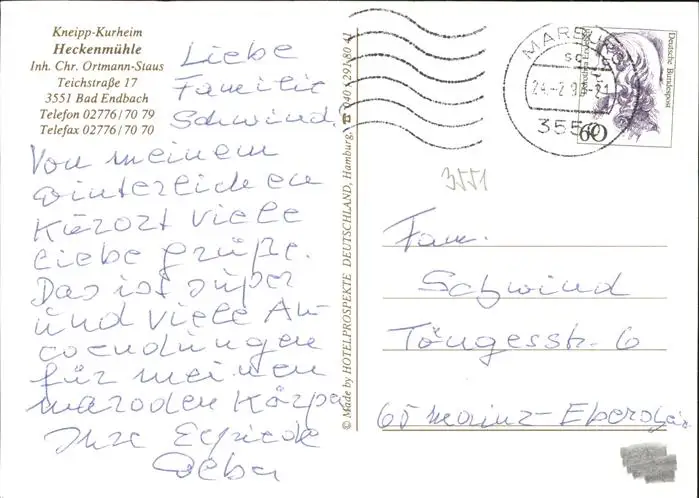 Kneipp-Kurheim
Heckenmühle
Inh. Chr. Ortmann-Staus
Teichstraße 17
3551 Bad Endbach
Telefon 02776/70 79
Telefax 02776/70 70
Liebe
Familie
Schwind.
Von meinem
winterlichen
Kurort viele
liebe Grüße.
Das ist super
und viele An-
wendungen
für meinen
maroden Körper
Ihre
© Made by HOTELPROSPEKTE DEUTSCHLAND, Hamburg, ☎ 040 / 291 80 41
MARBURG
3550
Deutsche Bundespost
60
3551
Fam.
Schwind
Töngesstr. 6
65 Mainz-Ebersheim